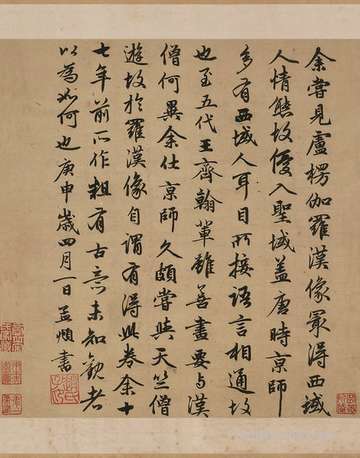 余嘗見盧楞伽羅漢像最得西域
人情態故優入聖域蓋唐時京師
多有西域人耳目所接語言相通故
也至五代王齊翰輩雖善畫要与漢
僧何異余仕京師久頗嘗與天竺僧
遊故於羅漢像自謂有得此卷余十
七年前所作粗有古意未知觀者
以為如何也庚申歲四月一日孟頫書